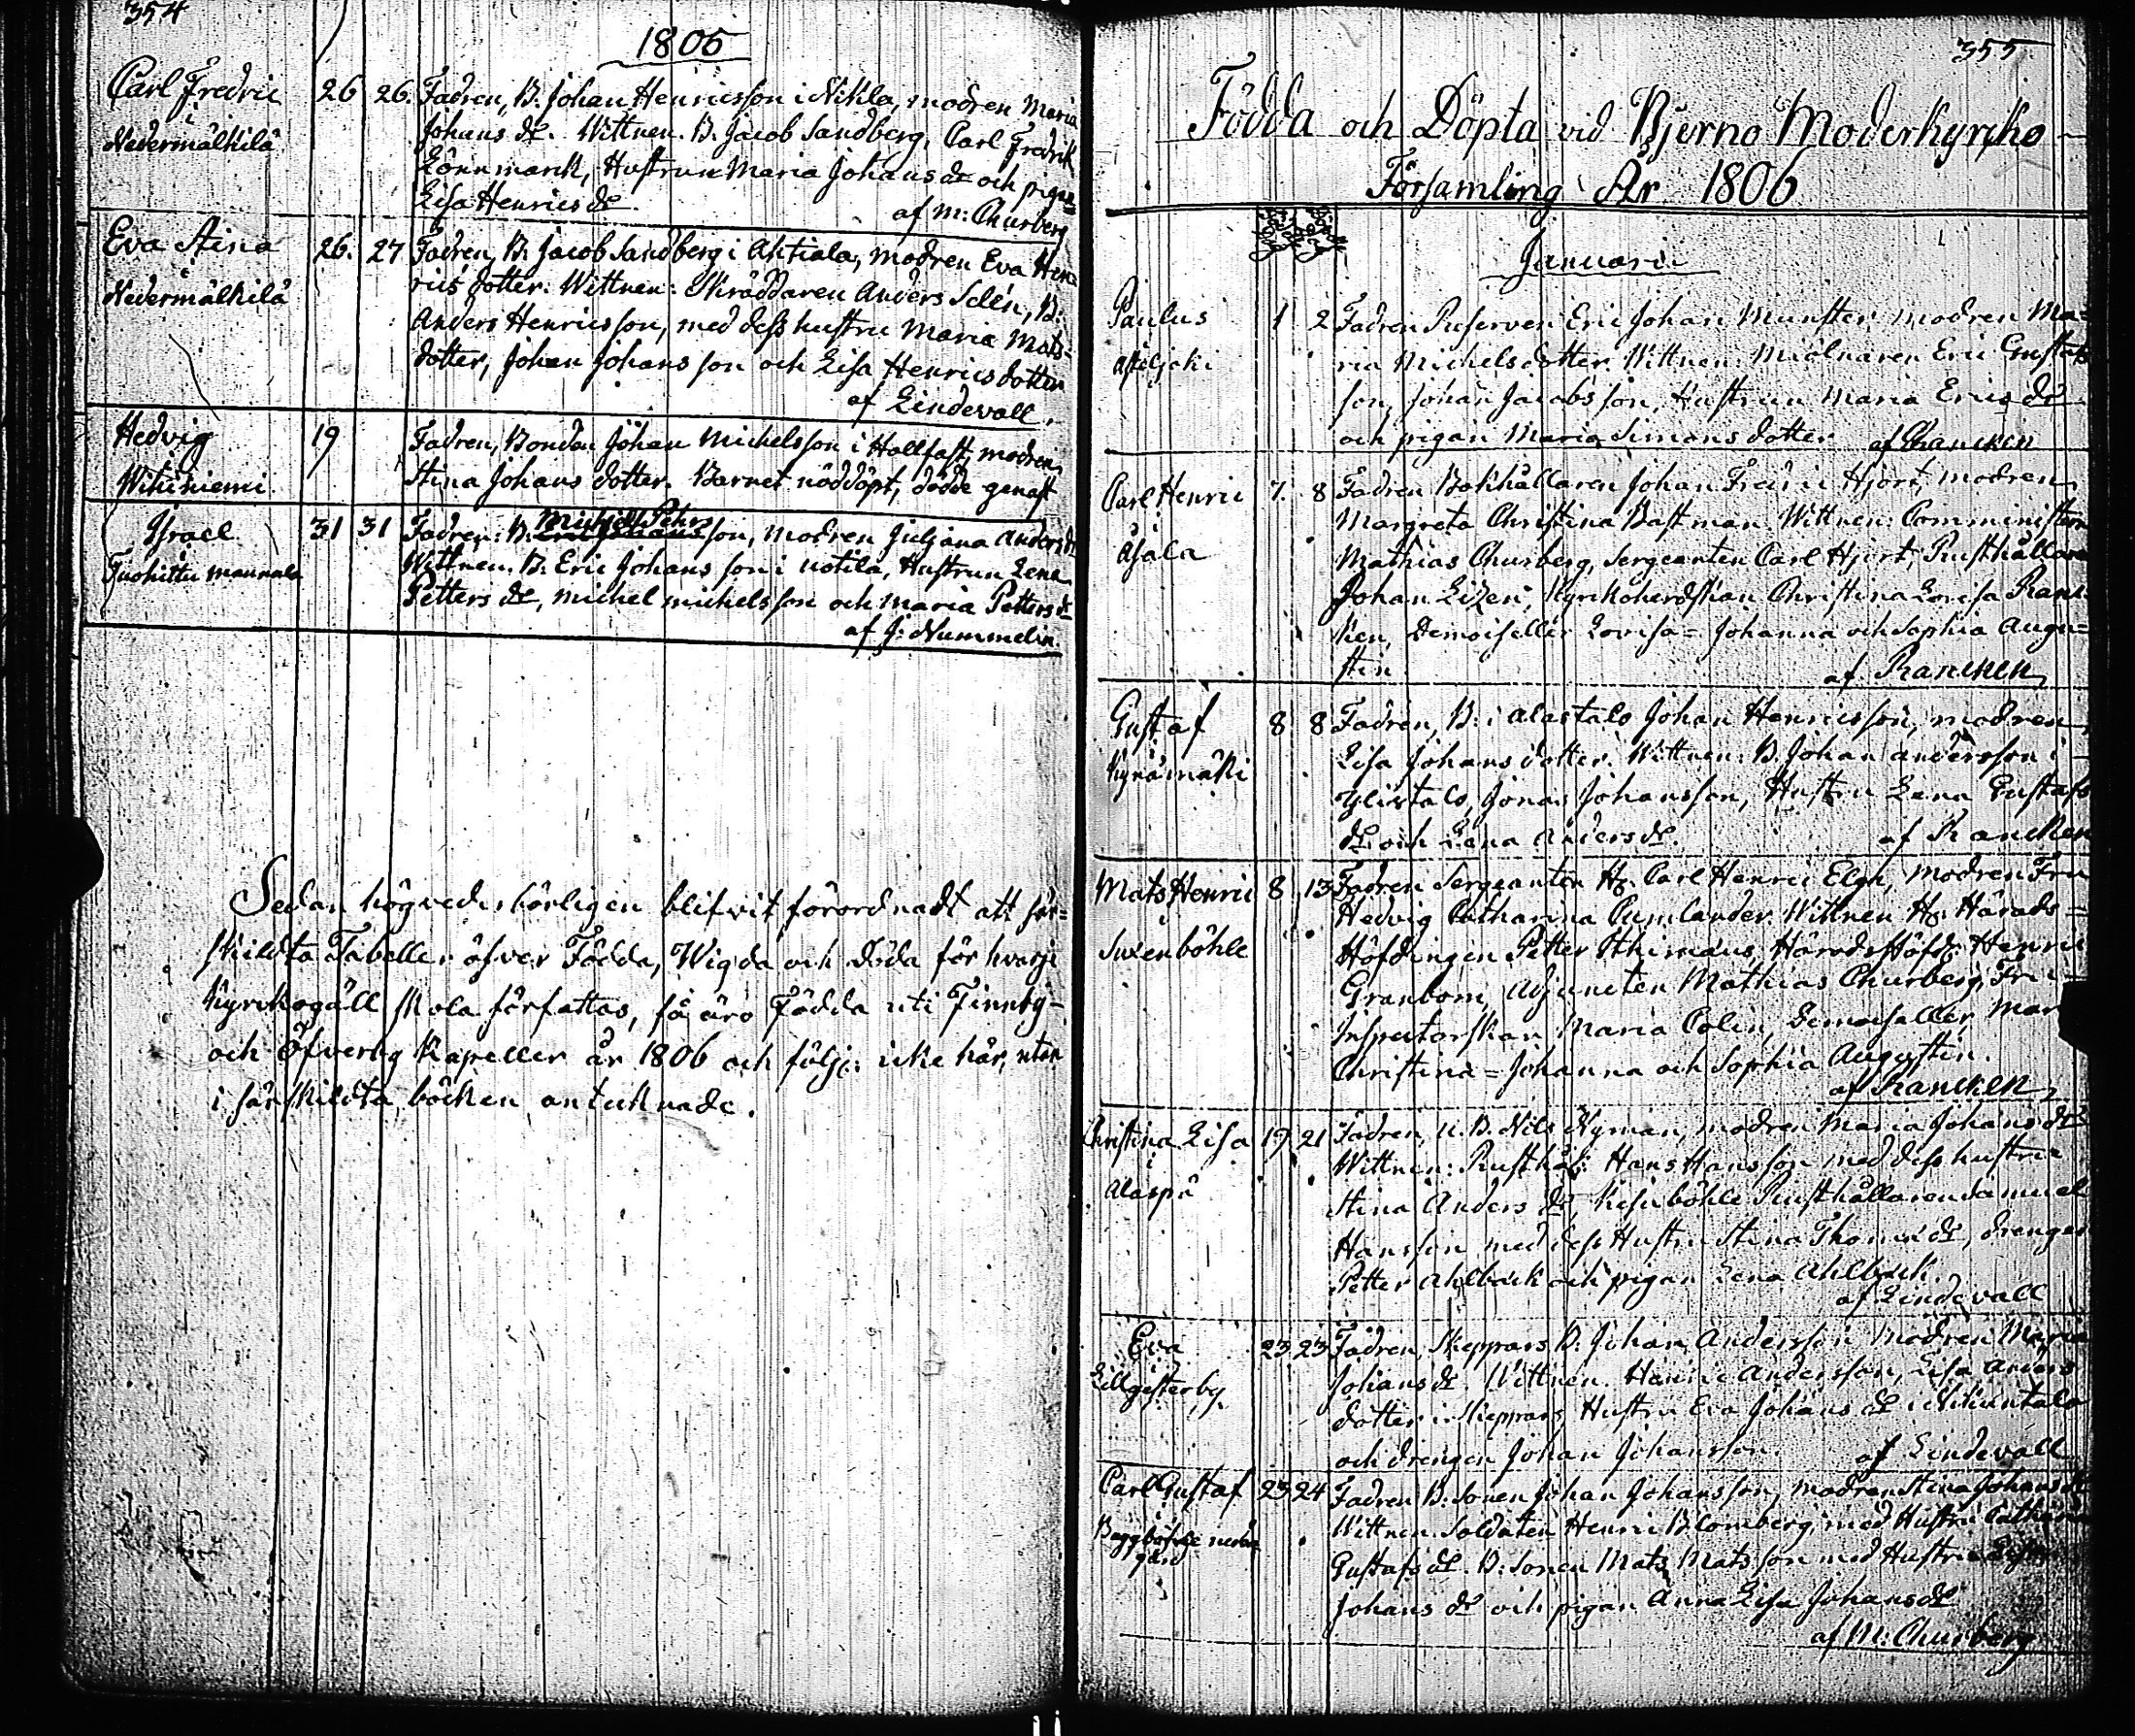 354
1805
Carl Fredric
i
Nedermälkilä
26 26. Fadren, B. Johan Henricsson i Nikla, modren Maria
Johans dr. Wittnen. B. Jacob Sandberg, Carl Fredrik
Lönnmarck, Hustrun Maria Johans dr och pigan
Lisa Henrics dr
af M: Churberg
Eva Stina
i
Nedermälkilä
26. 27 Fadren, B. Jacob Sandberg i Ahtiala, modren Eva Hen-
rics dotter. Wittnen: Skräddaren Anders Selén, B:
Anders Henricsson, med dess hustru Maria Mats-
dotter, Johan Johansson och Lisa Henricsdotter
af Lindevall.
Hedvig
Wihiniemi
19 Fadren, Bonden Johan Michelsson i Hallfast, modren
Stina Johans dotter. Barnet nöddöpt, dödde genast
Israel
Tuohittu mannala
31 31 Fadren: B. Michell Pehrsson, modren Juljana Anders dr
Wittnen. B. Eric Johansson i Uotila, Hustrun Lena
Petters dr, Michel Michelsson och Maria Petters dr
af J: Nummelin.
Sedan högvederbörligen blifvit förordnadt att sär=
skildta Tabeller öfver Födda, Wigda och Döda för hvarje
Kyrckogäll skola författas, så äro Födda uti Finnby-
och Öfverby Kapeller år 1806 och följ: icke här, utan
i särskildta böcken antecknade.
355
Födda och Döpta vid Bjerno Moderkyrcko
Församling År 1806
Januarii
Paulus
1 2 Fadren Reserven Eric Johan Munster, modren Ma=
ria Michelsdotter. Wittnen: Miölnaren Eric Gustafs
son, Johan Jacobsson, Hustrun Maria Erics dr
och pigan Maria Simonsdotter
Carl Henric
i
Åjala
7. 8 Fadren Bokhållaren Johan Fredric Hjort, modren
Margreta Christina Bastman. Wittnen: Comministern
Mathias Churberg, Sergeanten Carl Hjort, Rusthållare
Johan Lizen, Kyrkoherdskan Christina Lovisa Ranc-
ken, Demoiseller Lovisa= Johanna och Sophia Augu=
stin
af Rancken
Gustaf
Kyrämäki
8 8 Fadren, B: i Alastalo Johan Henricsson, modren
Lisa Johans dotter. Wittnen: B. Johan Andersson i
Ylistalo, Jonas Johansson, Hustru Lena Gustafs
dr och Lena Anders dr.
af Rancken
Mats Henric
i
Svenböhle
8 13 Fadren Sergeanten Hr. Carl Henric Elgh, modren Fru
Hedvig Catharina Cumlander. Wittnen Hr. Härads=
Höfdingen Petter Ithimæus, Häradshöfd: Henric
Granbom, Adjuncten Mathias Churberg, Fru
Inspectorskan Maria Polin, Demoiseller Mar
Christina= Johanna och Sophia Augustin.
af Rancken
Christina Lisa
i
Alaspä
19 21 Fadren, U. B. Nils Nyman, modren Maria Johans dr
Wittnen: Rusthål: Hans Hansson med dess hustru
Stina Anders dr, Kesuböhle Rusthållaren Samuel
Hansson med dess Hustru Stina Thomæ dr, drengen
Petter Ahlbäck och pigan Lena Ahlbäck.
af Lindevall
Eva
Lillgesterby
23 23 Fadren, Skeppars B: Johan Andersson modren Maria
Johans dr. Wittnen. Henric Andersson, Lisa Anders
dotter i Skeppars, Hustru Eva Johans dr i Nikuntalo
och drengen Johan Johansson.
af Lindevall
Carl Gustaf
23 24 Fadren B: Sonen Johan Johansson, modren Stina Johans dr
Wittnen. Soldaten Henric Blomberg, med Hustru Catharina
Gustafs dr. B: Sonen Mats Matsson med Hustru
Johans dr och pigan Anna Lisa Johans dr
af M: Churberg